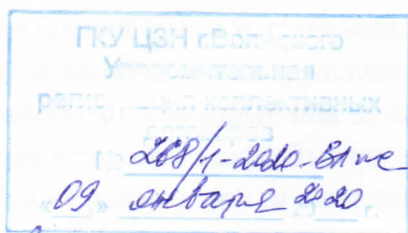 ГКУ ЦЗН г.Волжского
Уведомительная
регистрация коллективных
договоров
268/1-2020-
09 января 2020 г.